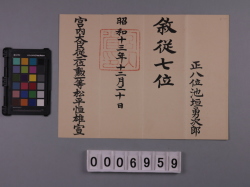 正八位池垣勇次郎
叙従七位
昭和十三年十二月二十日
宮内大臣従二位勲一等松平恒雄宣
0006959